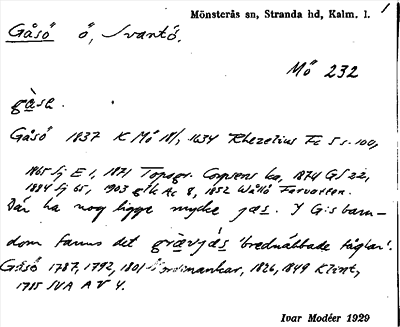 Mönsterås sn, Stranda hd, Kalm. l. 1
Gåsö ö, Svartö.
Mö 232
gåsa.
Gåsö 1837 K Mö 18/1, 1634 Rhezelius Fc 5 s. 100,
1865 Sj E 1, 1871 Topogr. Corpsens ka, 1874 GS 22,
1884 Sj 65, 1903 gtk Ac 8, 1852 Wållö Farvatten.
Där ha nog ligge mycke jas. I G:s barn-
dom fanns det gràvjás 'brednäbbade fåglar'.
Gåsö 1787, 1792, 1801 mankar, 1826, 1849 Klint,
1785 SVA A V 4.
Ivar Modéer 1929